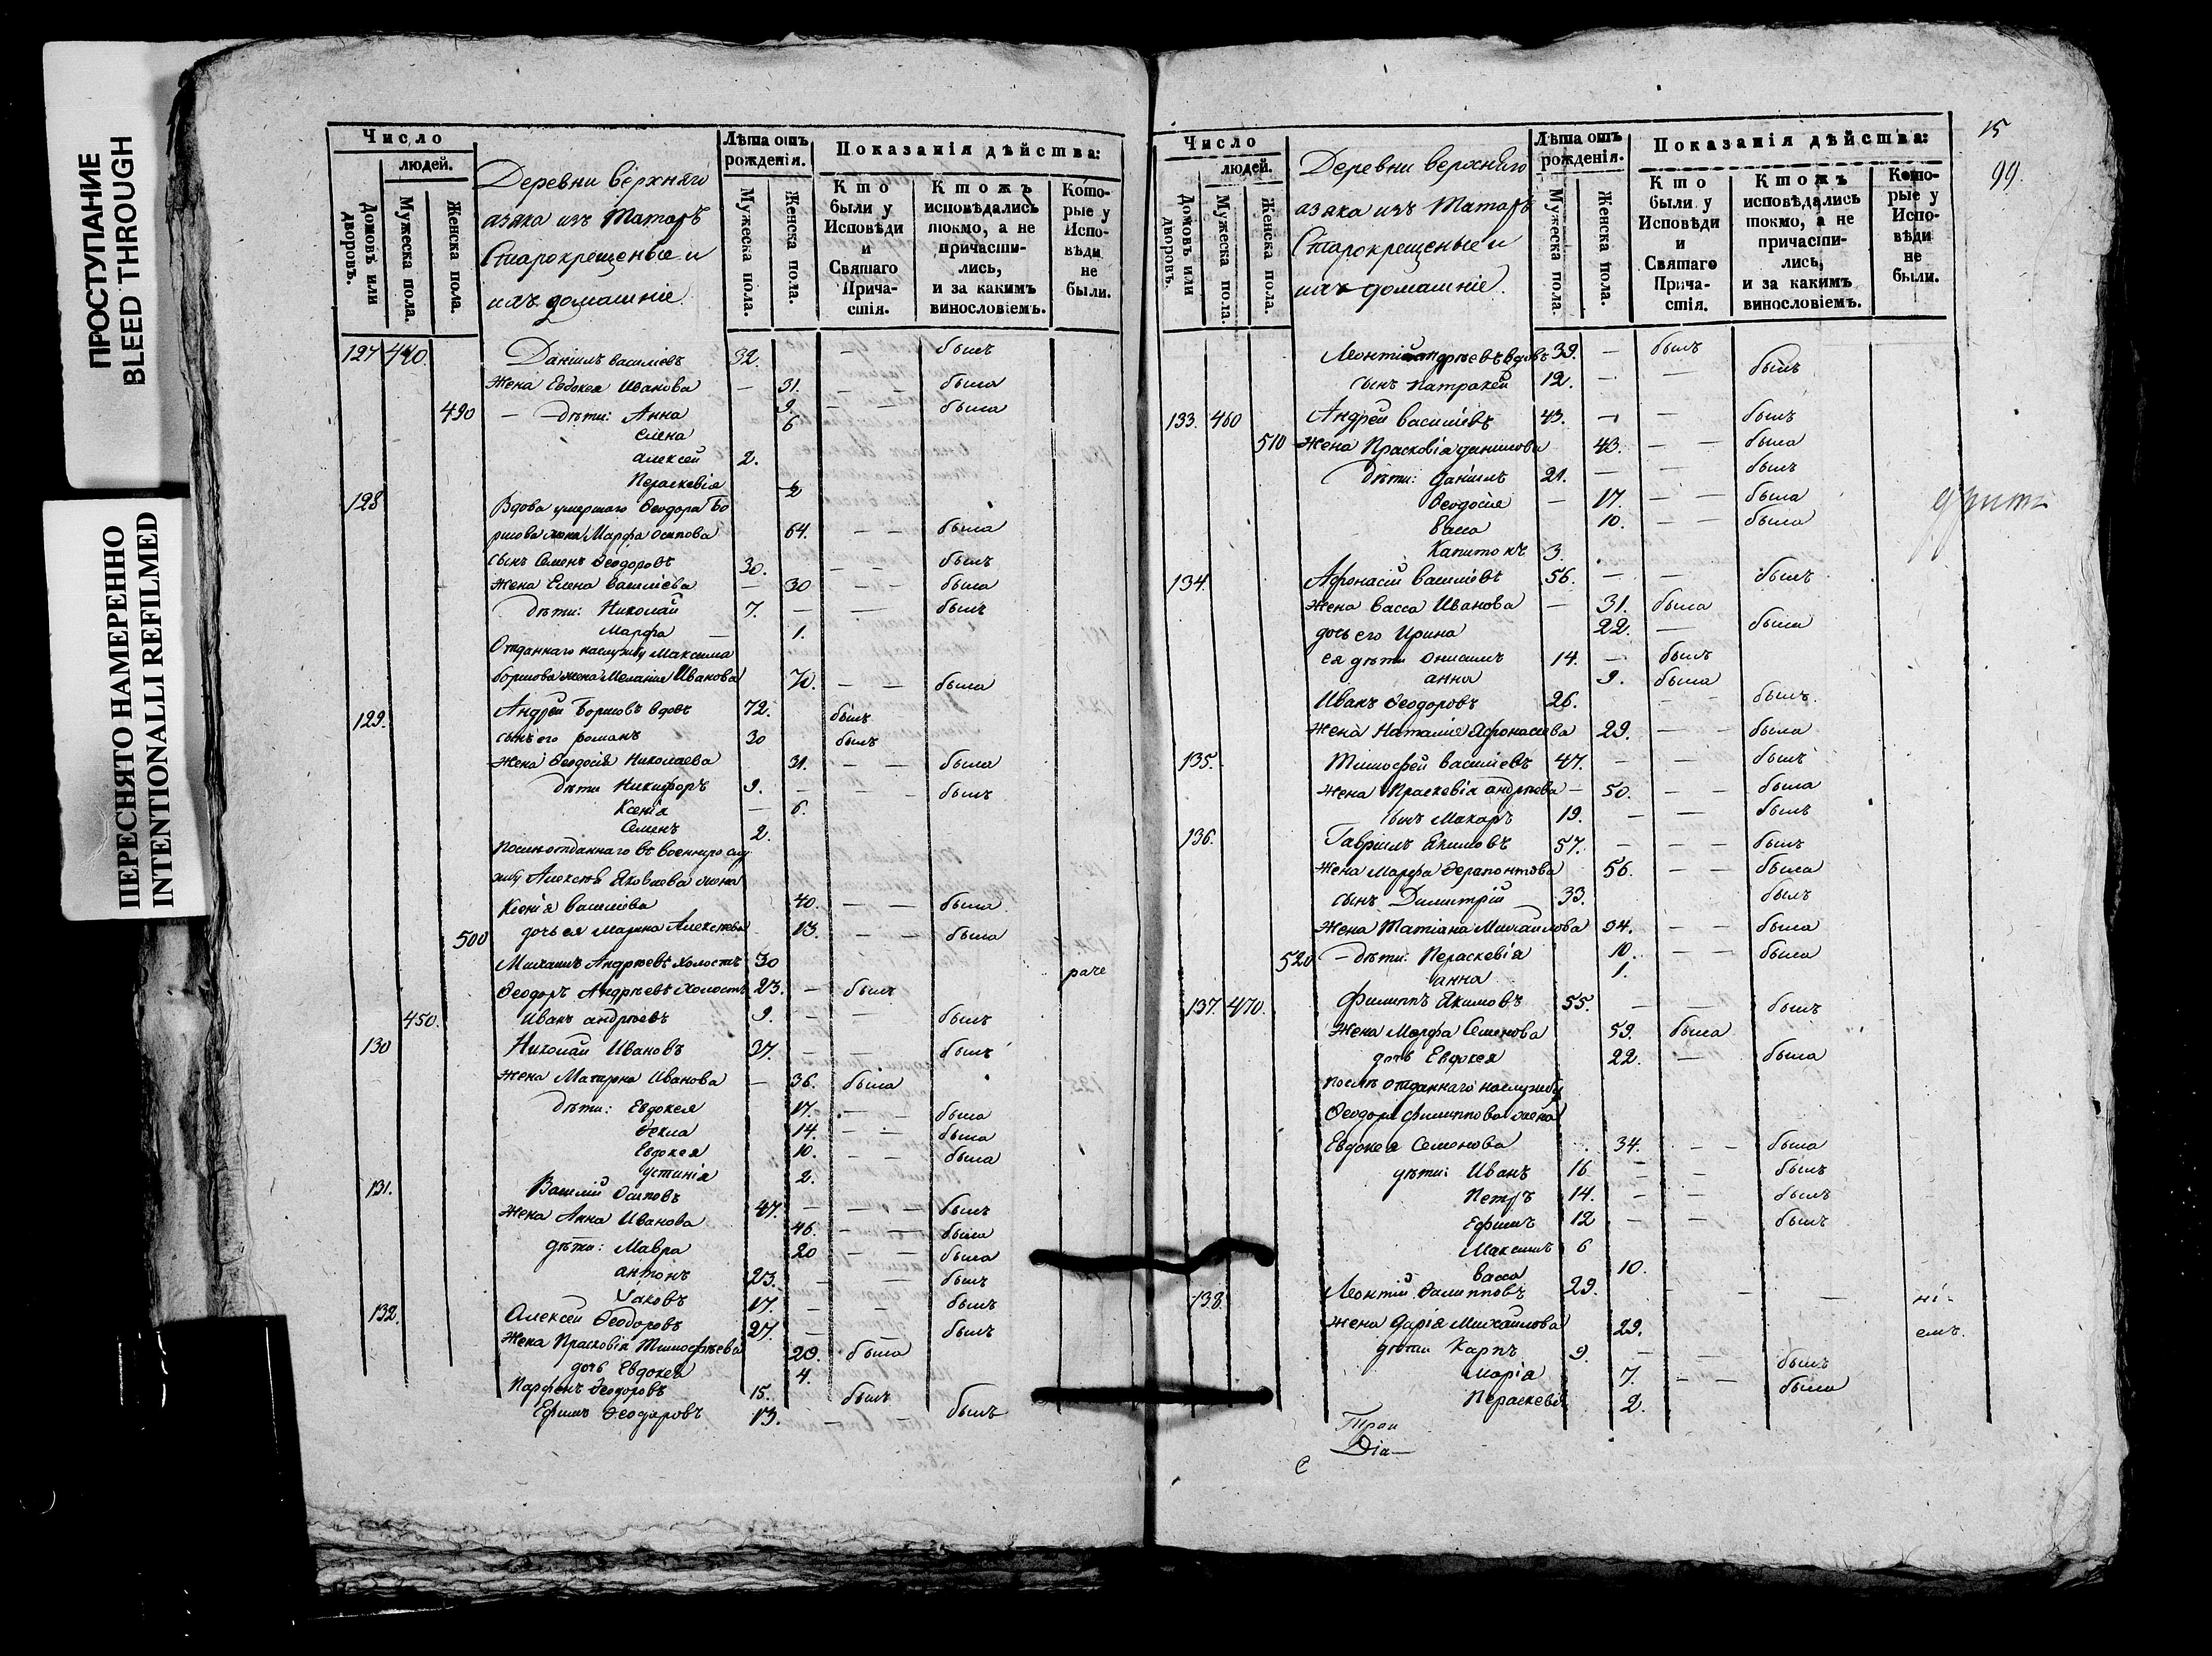 ПРОСТУПАНИЕ
BLEED THROUGH
ПЕРЕСНЯТО НАМЕРЕННО
INTENTIONALLI REFILMED
Число
людей.
Домовъ или дворовъ.
Мужеска пола.
Женска пола.
Деревни верхняго
азяка изъ Татаръ
Старокрещеные и
ихъ домашніе.
Лѣта отъ рожденія.
Мужеска пола.
Женска пола.
Показанія дѣйства:
Кто были у Исповѣди и Святаго Причастія.
Ктожъ исповѣдались токмо, а не причастились, и за какимъ винословіемъ.
Которые у Исповѣди не были.
127 440. Даніилъ Василіевъ 32. — былъ
Жена Евдокея Иванова — 31. — — была
490 — дѣти: Анна 9. — — была
Елена 6
Алексей 2.
Пераскевія 2
128 Вдова умершаго Ѳеодора Бо
рисова жена Марфа Осипова 64. — — была
сынъ Семенъ Ѳеодоровъ 30. — — былъ
жена Елена Василіева — 30 — — была
дѣти: Николай 7. — — былъ
Марфа — 1.
Отданнаго наслужбу Максима
борисова жена Меланія Иванова 70. — — была
129. Андрей Борисовъ вдовъ 72. былъ
сынъ его романъ 30 былъ
жена Ѳеодосія Николаева 31. — — была
дѣти Никифоръ 9. — — — былъ
Ксенія — 6.
Семенъ 2.
Послѣ отданнаго въ военную слу
жбу Алексѣя Яковлева жена
Ксенія Василіева 40. — — была
500 дочь ея Марина Алексѣева 13. — — была
Михаилъ Андрѣевъ холостъ 30 раче
Ѳеодоръ Андрѣевъ холостъ 23. — былъ
450. Иванъ андрѣевъ 9. — — былъ
130 Николай Ивановъ 37. — — былъ
жена Матрона Иванова — 36. была
дѣти: Евдокея 17. — — была
Ѳекла 14. — — была
Евдокея 10. — — была
Устинія 2.
131. Василій Осиповъ 47. — — — былъ
жена Анна Иванова 46. — — была
дѣти: Мавра 20 — — была
антонъ 23. — — былъ
Іаковъ 17. — — былъ
132. Алексей Ѳеодоровъ 27. — былъ
жена Прасковія Тимофѣева 20. была
дочь Евдокея 4.
Парфенъ Ѳеодоровъ 15. былъ
Ефимъ Ѳеодоровъ 13. — — былъ
15
99.
Число
людей.
Домовъ или дворовъ.
Мужеска пола.
Женска пола.
Деревни верхняго
азяка изъ Татаръ
Старокрещеные и
ихъ домашніе.
Лѣта отъ рожденія.
Мужеска пола.
Женска пола.
Показанія дѣйства:
Кто были у Исповѣди и Святаго Причастія.
Ктожъ исповѣдались токмо, а не причастились, и за какимъ винословіемъ.
Которые у Исповѣди не были.
Леонтій андрѣевъ вдовъ 39. — былъ
сынъ Патракей 12. — — былъ
133. 460 Андрей Василіевъ 43. — — былъ
510 Жена Прасковія данилова 43. — — была
дѣти: Даніилъ 21. — — былъ
Ѳеодосія — 17. — — была
Васса 10. — — была
Капитонъ 3.
134. Афонасій Василіевъ 56. — — былъ
жена Васса Иванова — 31. была
дочь его Ирина 22. — была
ея дѣти Онисимъ 14. — былъ
анна 9. была
Иванъ Ѳеодоровъ 26. — — былъ
жена Наталия Афонасиева 29. — — была
135. Тимофей Василіевъ 47. — — былъ
жена Праскевія андрѣева — 50. — — была
сынъ Макаръ 19. — — былъ
136. Гавріилъ Якимовъ 57. — — — былъ
жена Марфа Ѳерапонтова 56. — — была
сынъ Димитрій 33. былъ
жена Татіана Михайлова 34. — — была
520 — дѣти: Пераскевія 10. — — была
анна 1.
137. 470. Филиппъ Якимовъ 55. — — былъ
жена Марфа Семенова 59. была
дочь Евдокея 22. — была
послѣ отданнаго наслужбу
Ѳеодора филиппова жена
Евдокея Семенова 34. — — была
дѣти: Иванъ 16 — — былъ
Петръ 14. — — былъ
Ефимъ 12 — — былъ
Максимъ 6
Васса 10.
138. Леонтій Филипповъ 29. — — — ні-
жена Дарія Михайлова 29. емъ.
дѣти Карпъ 9. — — былъ
Марія 7. — — была
Пераскевія 2.
Трои
Діа—